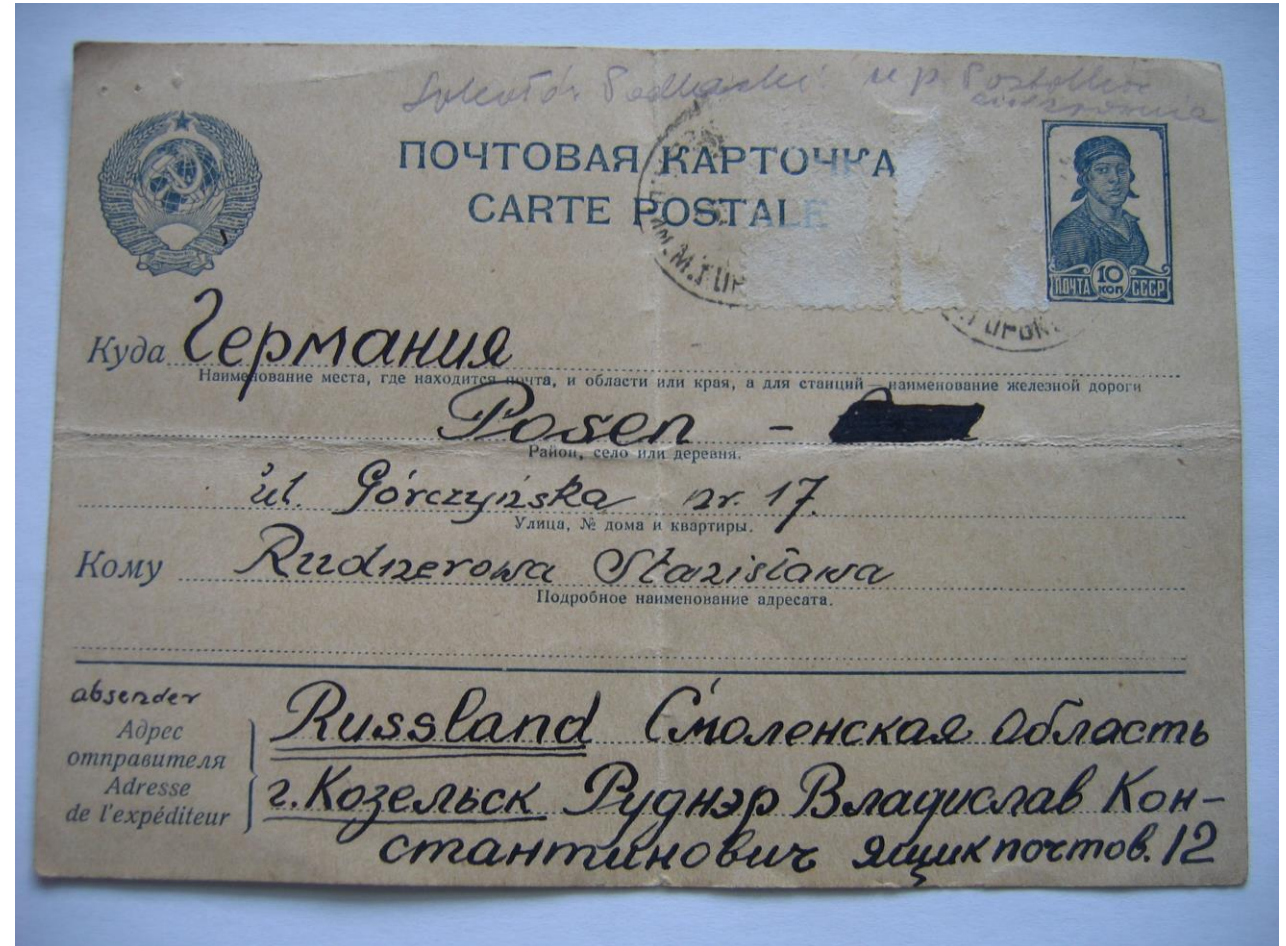 ПОЧТОВАЯ КАРТОЧКА
CARTE POSTALE
ПОЧТА 10 КОП СССР
Куда Германия
Наименование места, где находится почта, и области или края, а для станций — наименование железной дороги
Posen -
Район, село или деревня.
ul. Górczyńska nr. 17.
Улица, № дома и квартиры.
Кому Rudnerowa Stanisława
Подробное наименование адресата.
absender
Адрес отправителя
Adresse de l'expéditeur
Russland Смоленская область
г. Козельск Руднэр Владислав Кон-
стантинович ящик почтов. 12